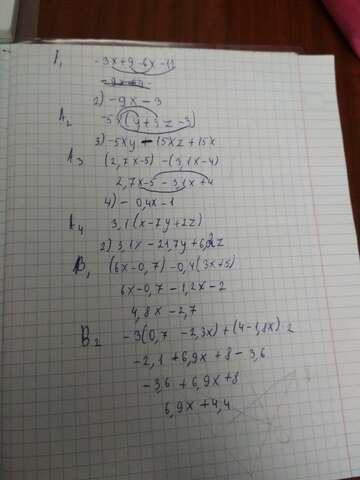 A1
-3x+9-6x-11
2) -9x-3
A2 -5x(y+3z-3)
3) -5xy-15xz+15x
A3 (2,7x-5)-(3,1x-4)
2,7x-5-3,1x+4
4) -0,4x-1
A4 3,1(x-7y+2z)
2) 3,1x-21,7y+6,2z
B1 (6x-0,7)-0,4(3x+5)
6x-0,7-1,2x-2
4,8x-2,7
B2 -3(0,7-2,3x)+(4-1,8x)·2
-2,1+6,9x+8-3,6
-3,6+6,9x+8
6,9x+4,4